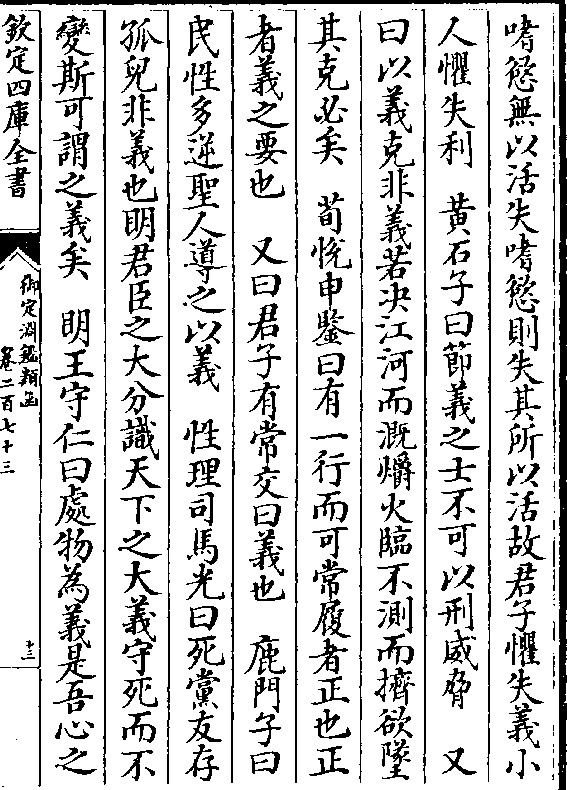 嗜慾無以活失嗜慾則失其所以活故君子懼失義小
人懼失利　黄石子曰節義之士不可以刑威脅　又
曰以義克非義若决江河而溉爝火臨不測而擠欲墜
其克必矣　荀悦申鑒曰有一行而可常履者正也正
者義之要也　又曰君子有常交曰義也　鹿門子曰
民性多逆聖人導之以義　性理司馬光曰死黨友存
孤兒非義也明君臣之大分識天下之大義守死而不
變斯可謂之義矣　明王守仁曰處物為義是吾心之
欽定四庫全書
御定淵鑑類函
卷二百七十三
十三